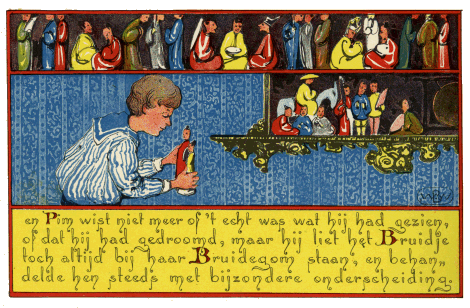 en Pim wist niet meer of 't echt was wat hij had gezien,
of dat hij had gedroomd, maar hij liet het Bruidje
toch altijd bij haar Bruidegom staan, en behan„
delde hen steeds met bijzondere onderscheiding.